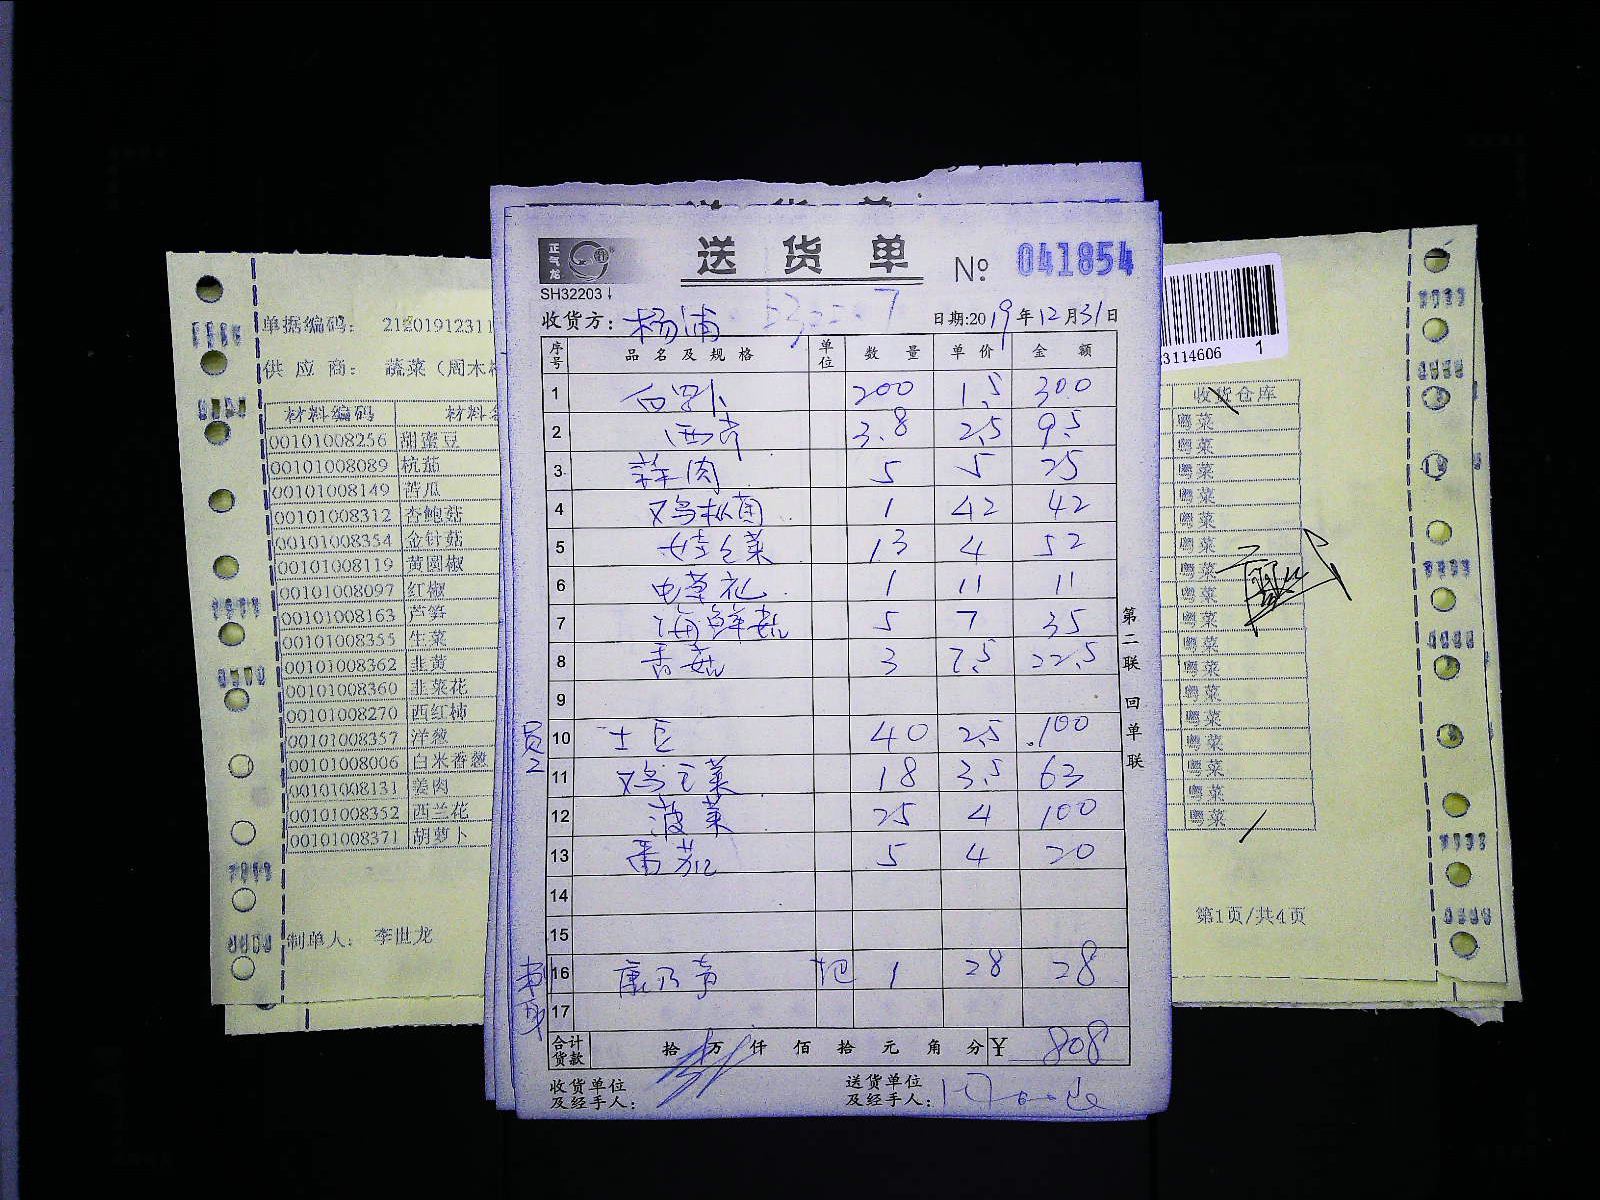 送货单 № 041854
正气龙
SH32203
收货方: 杨浦 日期:2019年12月31日
序号 品名及规格 单位 数量 单价 金额
1 白罗卜 200 1.5 300
2 西芹 3.8 2.5 9.5
3 蒜肉 5 5 25
4 鸡枞菌 1 42 42
5 娃娃菜 13 4 52
6 1 11 11
7 海鲜菇 5 7 35
8 香菇 3 7.5 22.5
9
员工 10 土豆 40 2.5 100
11 鸡毛菜 18 3.5 63
12 菠菜 25 4 100
13 番茄 5 4 20
14
15
16 康乃馨 把 1 28 28
17
合计货款 拾 万 仟 佰 拾 元 角 分 ¥ 808
收货单位及经手人:
送货单位及经手人:
第二联 回单联
单据编码: 21201912311
供应商: 蔬菜(周木
材料编码 材料
00101008256 甜蜜豆
00101008089 杭茄
00101008149 苦瓜
00101008312 杏鲍菇
00101008354 金针菇
00101008119 黄圆椒
00101008097 红椒
00101008163 芦笋
00101008355 生菜
00101008362 韭黄
00101008360 韭菜花
00101008270 西红柿
00101008357 洋葱
00101008006 白米香葱
00101008131 姜肉
00101008352 西兰花
00101008371 胡萝卜
制单人: 李世龙
3114606 1
收货仓库
粤菜
粤菜
粤菜
粤菜
粤菜
粤菜
粤菜
粤菜
粤菜
粤菜
粤菜
粤菜
粤菜
粤菜
粤菜
粤菜
粤菜
第1页/共4页